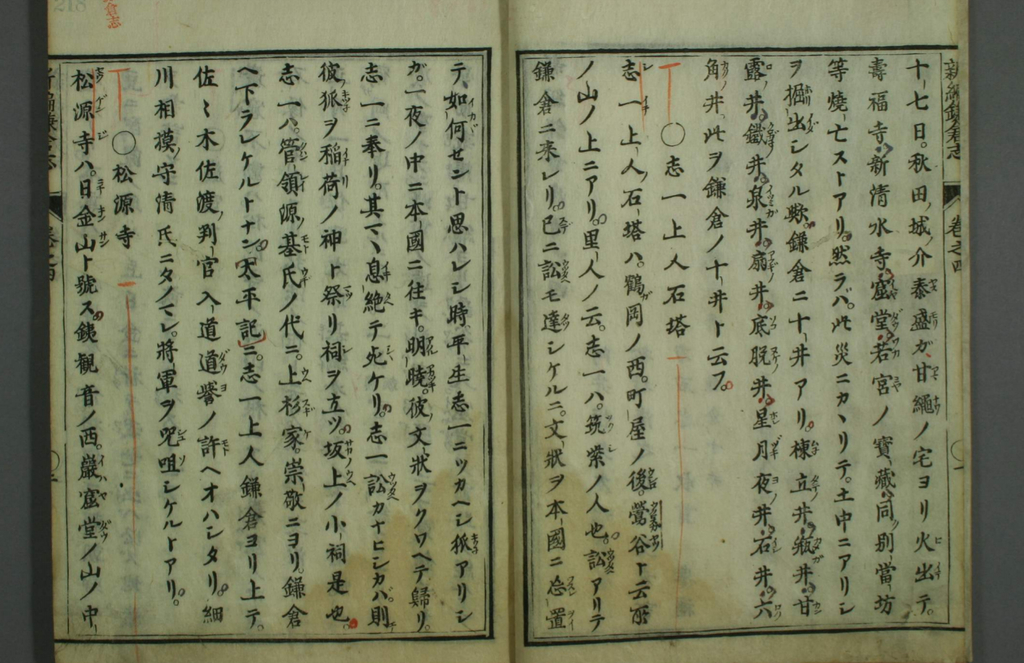 新編鎌倉志 巻之四
十一七日。秋田ノ城ノ介泰盛ガ、甘繩ノ宅ヨリ火出テ。
壽福寺。新清水寺。窟堂。若宮ノ寶藏。同別當坊
等燒亡ストアリ。然ラバ。此災ニカヽリテ。土中ニアリシ
ヲ掘出シタル歟。鎌倉ニ十井アリ。棟立井。瓶井。甘
露井。鐵井。泉井。扇井。底脱井。星月夜井。石井。六
角ノ井。此ヲ鎌倉ノ十井ト云フ。
〇志一上人石塔
志一上人ノ石塔ハ。鶴岡ノ西。町屋ノ後。鶯谷ト云所
ノ山ノ上ニアリ。里人ノ云。志一ハ。筑紫ノ人也。訟アリテ
鎌倉ニ来レリ。已ニ訟モ達シケルニ。文狀ヲ本國ニ忘置
テ、如何セント思ハレシ時。平生志一ニツカヘシ狐アリシ
ガ。一夜ノ中ニ本國ニ往キ。明曉。彼ノ文狀ヲクワヘテ歸リ。
志一ニ奉リ。其マヽ息絶テ死ケリ。志一訟カナヒシカバ。則
彼狐ヲ稲荷ノ神ト祭リ祠ヲ立ツ。坂上ノ小祠是也。
志一ハ。管領源ノ基氏ノ代ニ。上杉家。崇敬ニヨリ。鎌倉
ヘ下ラレケルトナン。太平記ニ。志一上人鎌倉ヨリ上テ。
佐々木佐渡ノ判官入道道譽ノ許ヘオハシタリ。細
川相摸ノ守清氏ニタノマレ。將軍ヲ咒咀シケルトアリ。
〇松源寺
松源寺ハ。日金山ト號ス。銕觀音ノ西。巌窟堂ノ山ノ中